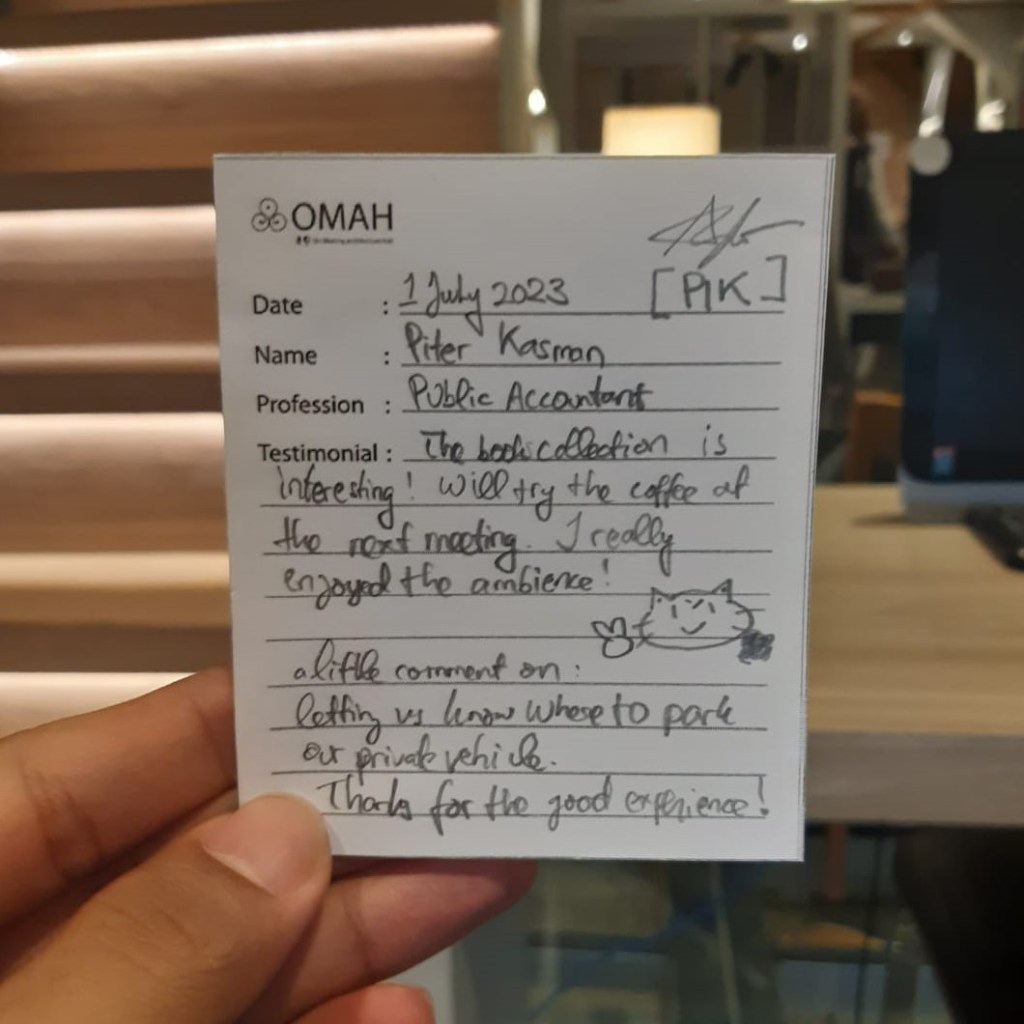 OMAH
[PiK]
Date : 1 July 2023
Name : Piter Kasman
Profession : Public Accountant
Testimonial : The book collection is
interesting! Will try the coffee at
the next meeting. I really
enjoyed the ambience!
a little comment on:
letting us know where to park
our private vehicle.
Thanks for the good experience!